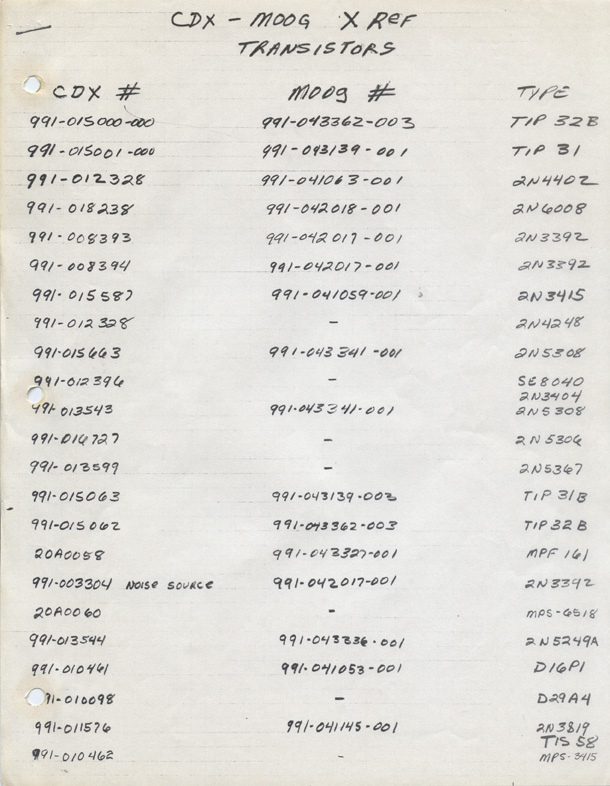 CDX - MOOG X REF
TRANSISTORS
CDX # MOOG # TYPE
991-015000-000 991-043362-003 TIP 32B
991-015001-000 991-043139-001 TIP 31
991-012328 991-041063-001 2N4402
991-018238 991-042018-001 2N6008
991-008393 991-042017-001 2N3392
991-008394 991-042017-001 2N3392
991-015587 991-041059-001 2N3415
991-012328 - 2N4248
991-015663 991-043341-001 2N5308
991-012396 - SE8040
2N3404
991-013543 991-043341-001 2N5308
991-016727 - 2N5306
991-013599 - 2N5367
991-015063 991-043139-003 TIP 31B
991-015062 991-043362-003 TIP 32B
20A0058 991-043327-001 MPF 161
991-003304 NOISE SOURCE 991-042017-001 2N3392
20A0060 - MPS-6518
991-013544 991-043336-001 2N5249A
991-010461 991-041053-001 D16P1
91-010098 - D29A4
991-011576 991-041145-001 2N3819
TIS 58
991-010462 - MPS-3415